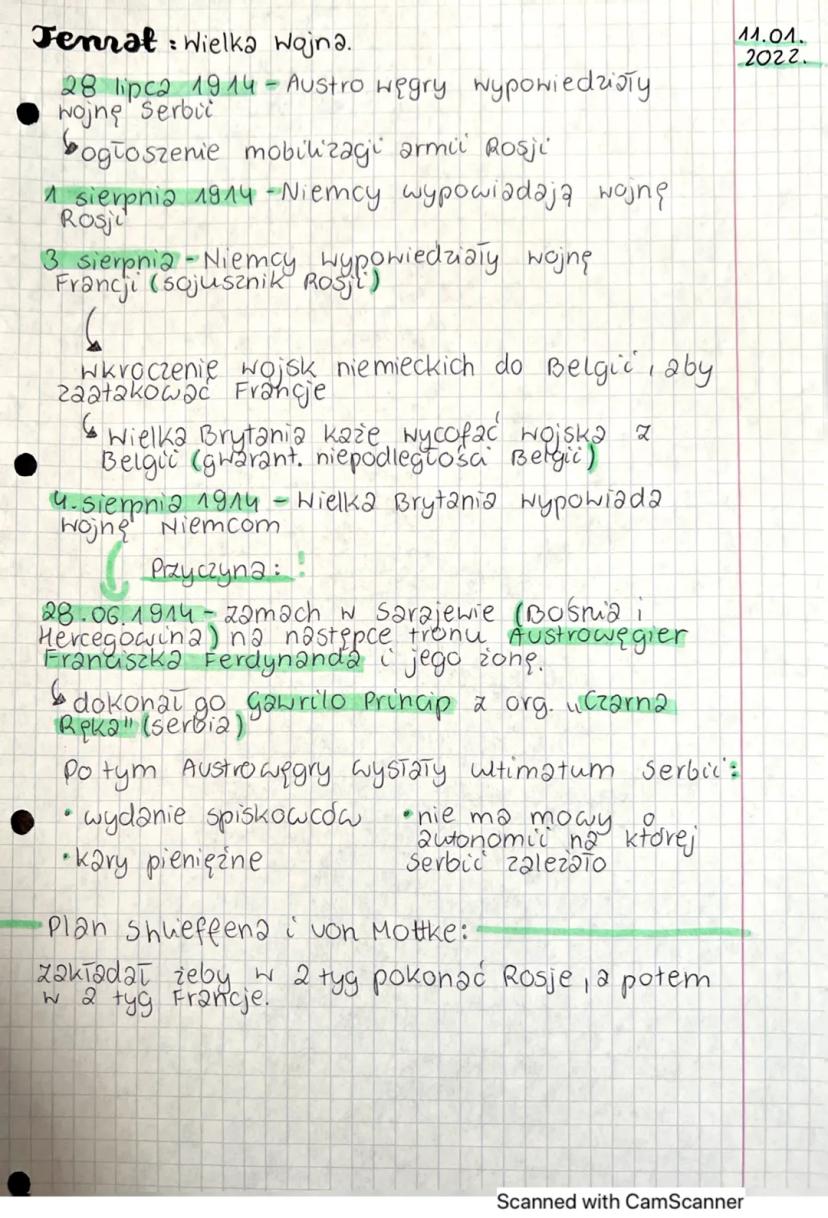 Temat: Wielka Wojna.
11.01.
2022.
28 lipca 1914 - Austro węgry wypowiedziały
wojnę Serbii
ogłoszenie mobilizacji armii Rosji
1 sierpnia 1914 - Niemcy wypowiadają wojnę
Rosji
3 sierpnia - Niemcy wypowiedziały wojnę
Francji (sojusznik Rosji)
wkroczenie wojsk niemieckich do Belgii, aby
zaatakować Francje
Wielka Brytania każe wycofać wojska z
Belgii (gwarant. niepodległości Belgii)
4. sierpnia 1914 - Wielka Brytania wypowiada
wojnę Niemcom
Przyczyna: !
28.06.1914 - zamach w Sarajewie (Bośnia i
Hercegowina) na następce tronu Austrowęgier
Franciszka Ferdynanda i jego żonę.
dokonał go Gawriło Princip z org. "Czarna
Ręka" (Serbia)
Po tym Austrowęgry wysłały ultimatum Serbii:
• wydanie spiskowców
• kary pieniężne
• nie ma mowy o
autonomii na której
Serbii zależało
Plan Shlieffena i von Moltke:
zakładał żeby w 2 tyg pokonać Rosje, a potem
w 2 tyg Francje.
Scanned with CamScanner